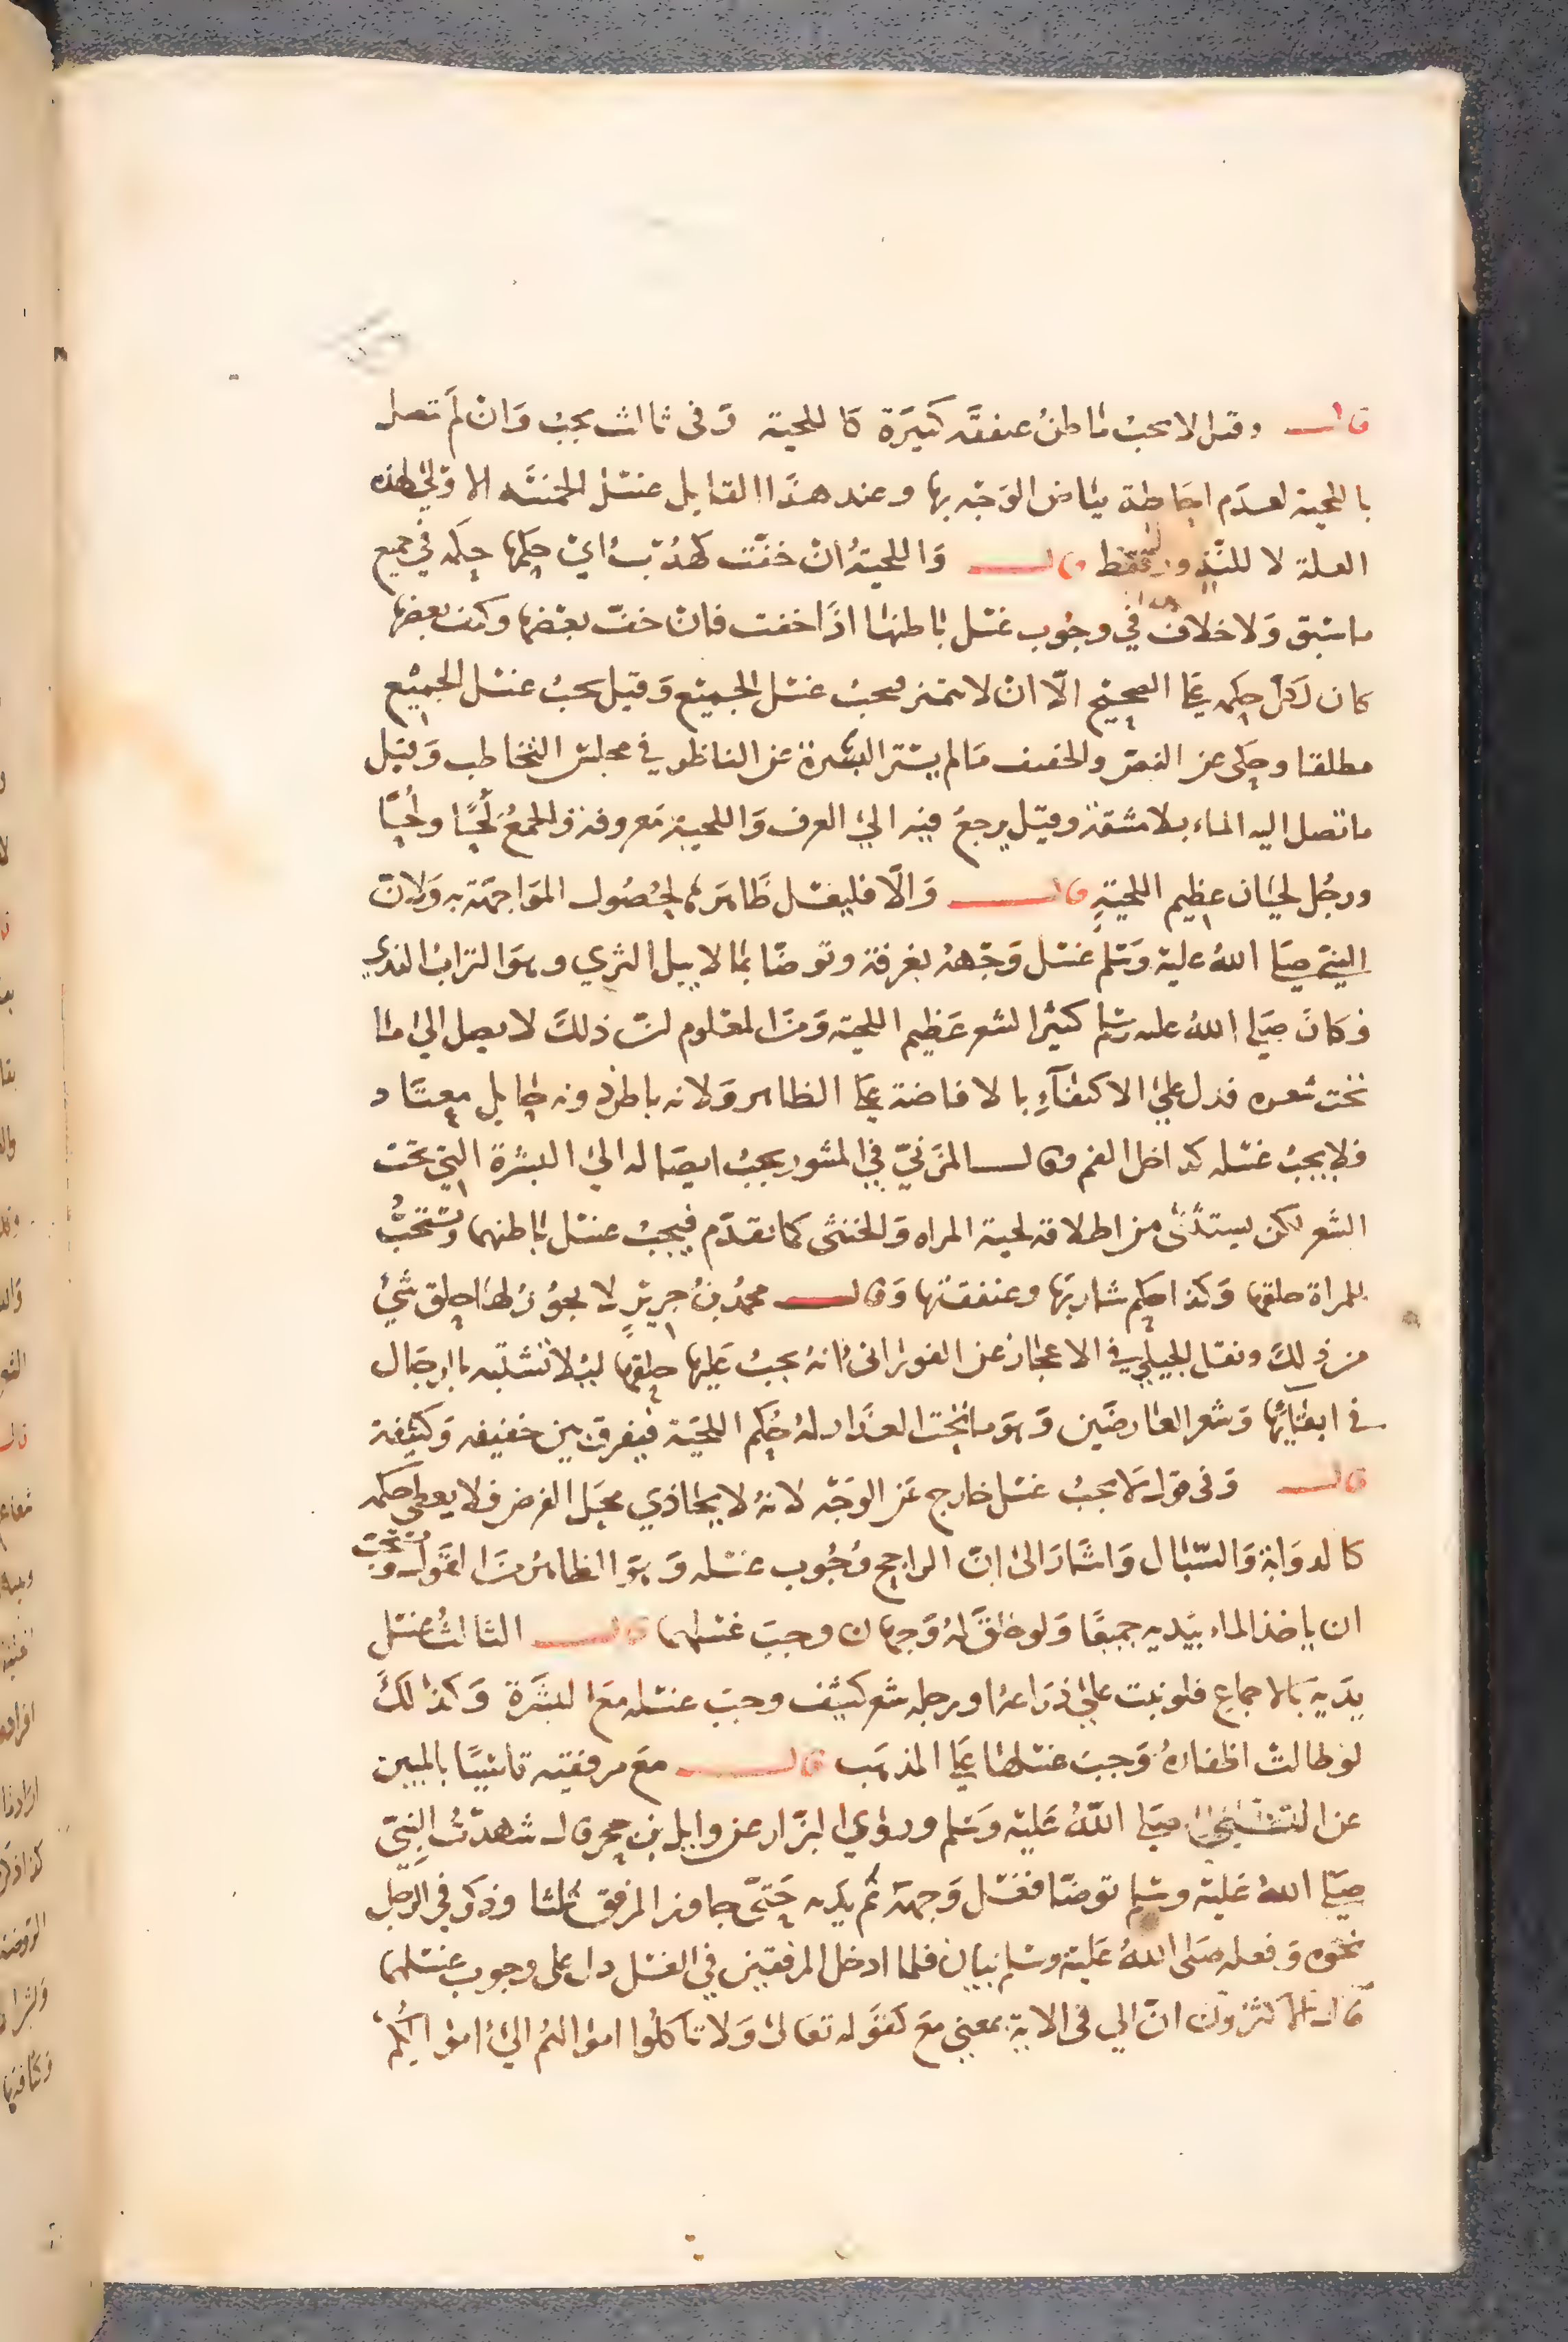 قال وقيل لا يجب باطن عنفقة كثيرة كاللحية وفي ثالث يجب وان لم تصل
باللحية لعدم احاطة بياض الوجه بها وعند هذا القايل غسل الخمسة الاولى لهذه
العلة لا للندور فقط قال واللحية ان خفت كهدب اي حكمها حكمه في جميع
ما سبق ولا خلاف في وجوب غسل باطنها اذا خفت فان خف بعضها وكثف بعضها
كان لكل حكمه على الصحيح الا ان لا يتميز فيجب غسل الجميع وقيل يجب غسل الجميع
مطلقا وحكى عن النص والخفيف ما لم يستر البشرة عن الناظر في مجلس التخاطب وقيل
ما تصل اليه الماء بلا مشقة وقيل يرجع فيه الى العرف واللحية معروفة والجمع لحيا ولحيا
ورجل لحيان عظيم اللحية قال والا فليغسل ظاهره لحصول المواجهة به ولان
النبي صلى الله عليه وسلم غسل وجهه بغرفة وتوضا بما لا يبل الثرى وهو التراب الندي
وكان صلى الله عليه وسلم كثير الشعر عظيم اللحية ومن المعلوم ان ذلك لا يصل الى ما
تحت شعره فدل على الاكتفاء بالافاضة على الظاهر ولانه باطن دونه حايل معتاد
فلا يجب غسله كداخل الفم وقال المزني في المنثور يجب ايصاله الى البشرة التي تحت
الشعر لكن يستثنى من اطلاقه لحية المراه والخنثى كما تقدم فيجب غسل باطنهما ويستحب
للمراة حلقها وكذا حكم شاربها وعنفقتها وقال محمد بن جرير لا يجوز لها حلق شيء
من ذلك ونقل الجيلي في الاعجاز عن الفوراني انه يجب عليها حلقها ليلا تتشبه بالرجال
في ابقايها وشعر العارضين وهو ما تحت العذار له حكم اللحية فيفرق بين خفيفه وكثيفه
قال وفي قول لا يجب غسل خارج عن الوجه لانه لا يحاذي محل الفرض فلا يعطى حكمه
كالدوابة والسبال واشار الى ان الراجح وجوب غسله وهو الظاهر من القول ويستحب
ان ياخذ الماء بيديه جميعا ولو خلق له وجهان وجب غسلهما قال الثالث غسل
يديه بالاجماع فلو نبت على ذراعه او رجله شعر كثيف وجب غسله مع البشرة وكذلك
لو طالت اظفاره وجب غسلها على المذهب قال مع مرفقيه تاسيا بالمبين
عن صلى الله عليه وسلم وروى البزار عن وايل بن حجر قال شهدت النبي
صلى الله عليه وسلم توضا فغسل وجهه ثم يديه حتى جاوز المرفق ثلثا وذكر في الرجل
نحوه وفعله صلى الله عليه وسلم بيان فلما ادخل المرفقين في الغسل دل على وجوب غسلهما
قال الاكثرون ان الى في الاية بمعنى مع كقوله تعالى ولا تاكلوا اموالهم الى اموالكم